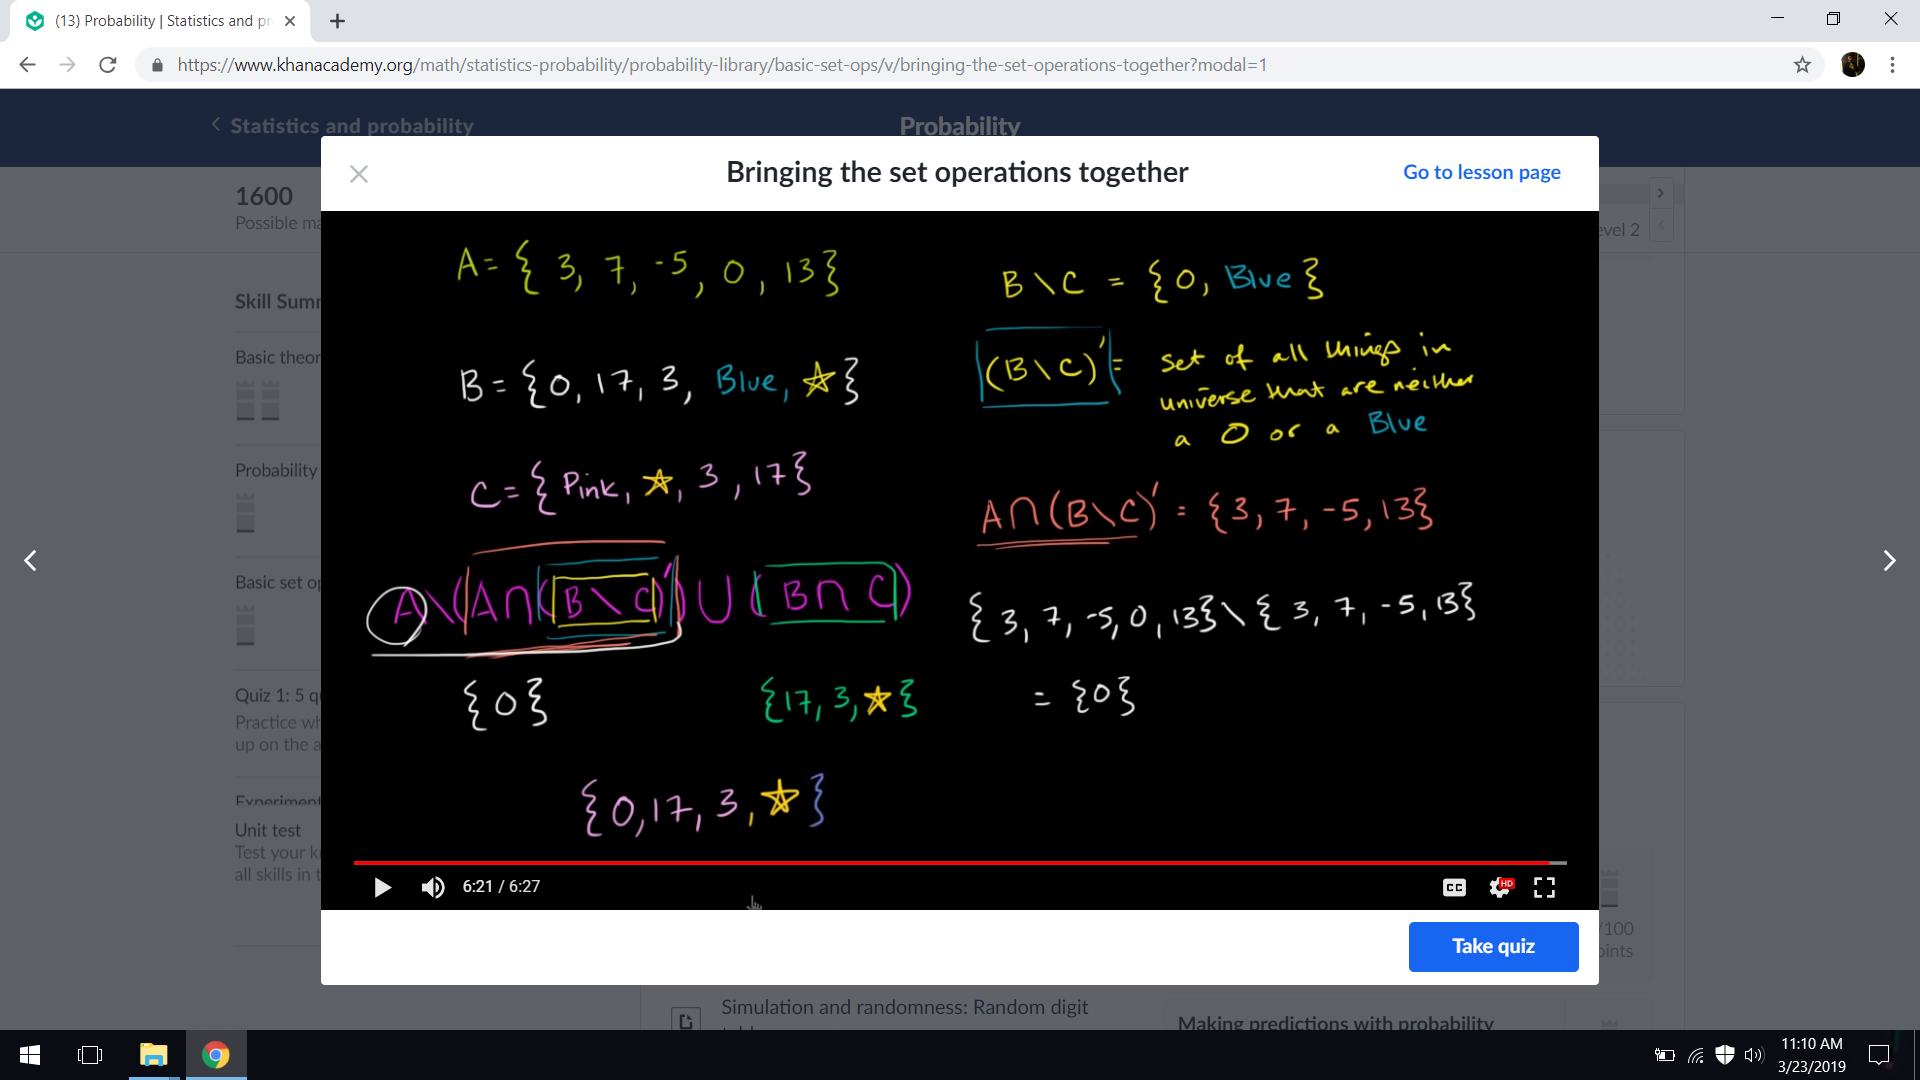 (13) Probability | Statistics and pr
https://www.khanacademy.org/math/statistics-probability/probability-library/basic-set-ops/v/bringing-the-set-operations-together?modal=1
Statistics and probability
Probability
Bringing the set operations together
Go to lesson page
1600
Possible ma
evel 2
Skill Summ
Basic theor
Probability
Basic set op
Quiz 1: 5 qu
Practice wh
up on the a
Experiment
Unit test
Test your k
all skills in t
A = { 3, 7, -5, 0, 13}
B = {0, 17, 3, Blue, ☆}
C = { Pink, ☆, 3, 17}
A\(A∩(B\C)')∪(B∩C)
{0}
{17, 3, ☆}
{0, 17, 3, ☆}
B\C = {0, Blue}
(B\C)' = set of all things in
universe that are neither
a 0 or a Blue
A∩(B\C)' = {3, 7, -5, 13}
{3, 7, -5, 0, 13}\{3, 7, -5, 13}
= {0}
6:21 / 6:27
CC
HD
Take quiz
/100
oints
Simulation and randomness: Random digit
Making predictions with probability
11:10 AM
3/23/2019